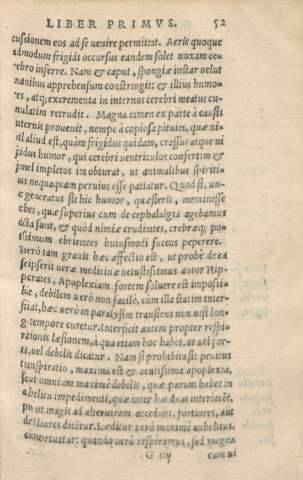 LIBER PRIMVS. 52
cussionem eos ad se venire permittat. Aeris quoque
admodum frigidi occursus eandem solet noxam ce-
rebro inferre. Nam & caput, spongiæ instar velut
manibus apprehensum constringit: & illius humo-
res, atq; excrementa in internos cerebri meatus cu-
mulatim retrudit. Magna tamen ex parte à causis
internis prouenit, nempe à copiosa pituita, quæ ni-
hil aliud est, quàm frigidus quidam, crassus atque vi
scidus humor, qui cerebri ventriculos confertim &
simel impletos ita obturat, ut animalibus spiriti-
us nequaquam peruios esse patiatur. Quod si, un-
de generatus sit hic humor, quæsieris, meminisse
debes, quæ superius cum de cephalalgia agebamus
dicta sunt, & quòd nimiæ cruditates, crebræq; po-
tissimum ebrietates huiusmodi succos peperere.
Porrò tam grauis hæc affectio est, ut probè de ea
scripserit veræ medicinæ vetustissimus autor Hip-
pocrates, Apoplexiam fortem soluere est impossi-
bile, debilem verò non facilè, cum illa statim inter-
ficiat, hæc verò in paralysim transiens non nisi lon-
g. tempore curetur. Interficit autem propter respi-
rationis læsionem, a qua etiam hoc habet, ut vel for-
tis, vel debilis dicatur. Nam si prohibita sit penitus
transpiratio, maxima est & acutissima apoplexia,
sicut omnium maximè debilis, quæ parum habet in
anhelitu impedimenti, quæ inter has duas interiacet,
ut magis ad alterutram accedunt, fortiores, aut
debiliores dicitur. Læditur verò maximè anhelitus,
quando verò respiramus, sed magna
G iiij cum ui